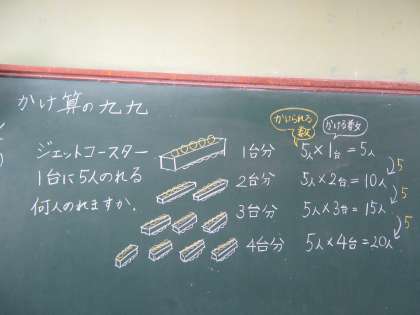 かけ算の九九
ジェットコースター
1台に5人のれる
何人のれますか.
かけられる数
かける数
1台分 5人×1台=5人
5
2台分 5人×2台=10人
5
3台分 5人×3台=15人
5
4台分 5人×4台=20人